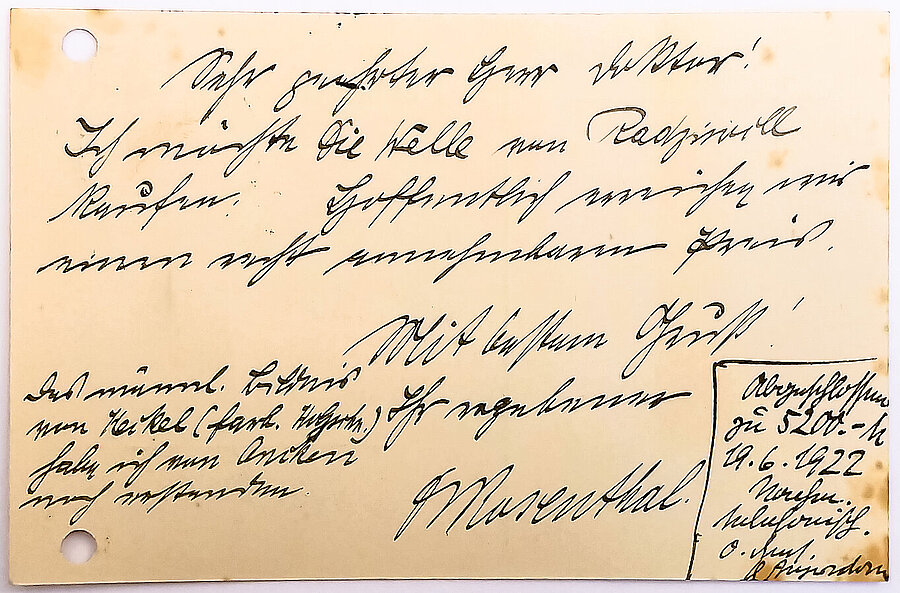 Sehr geehrter Herr Doktor!
Ich möchte die Welle von Radziwill
kaufen. Hoffentlich erreichen wir
einen recht annehmbaren Preis.
Mit bestem Gruß!
Ihr ergebener
JMosenthal.
Das männl. Bildnis
von Heckel (farb. Holzschn.)
habe ich von Oncken
noch erstanden.
Abgeschlossen
zu 5200.-M
19.6.1922
Nachm.
telefonisch.